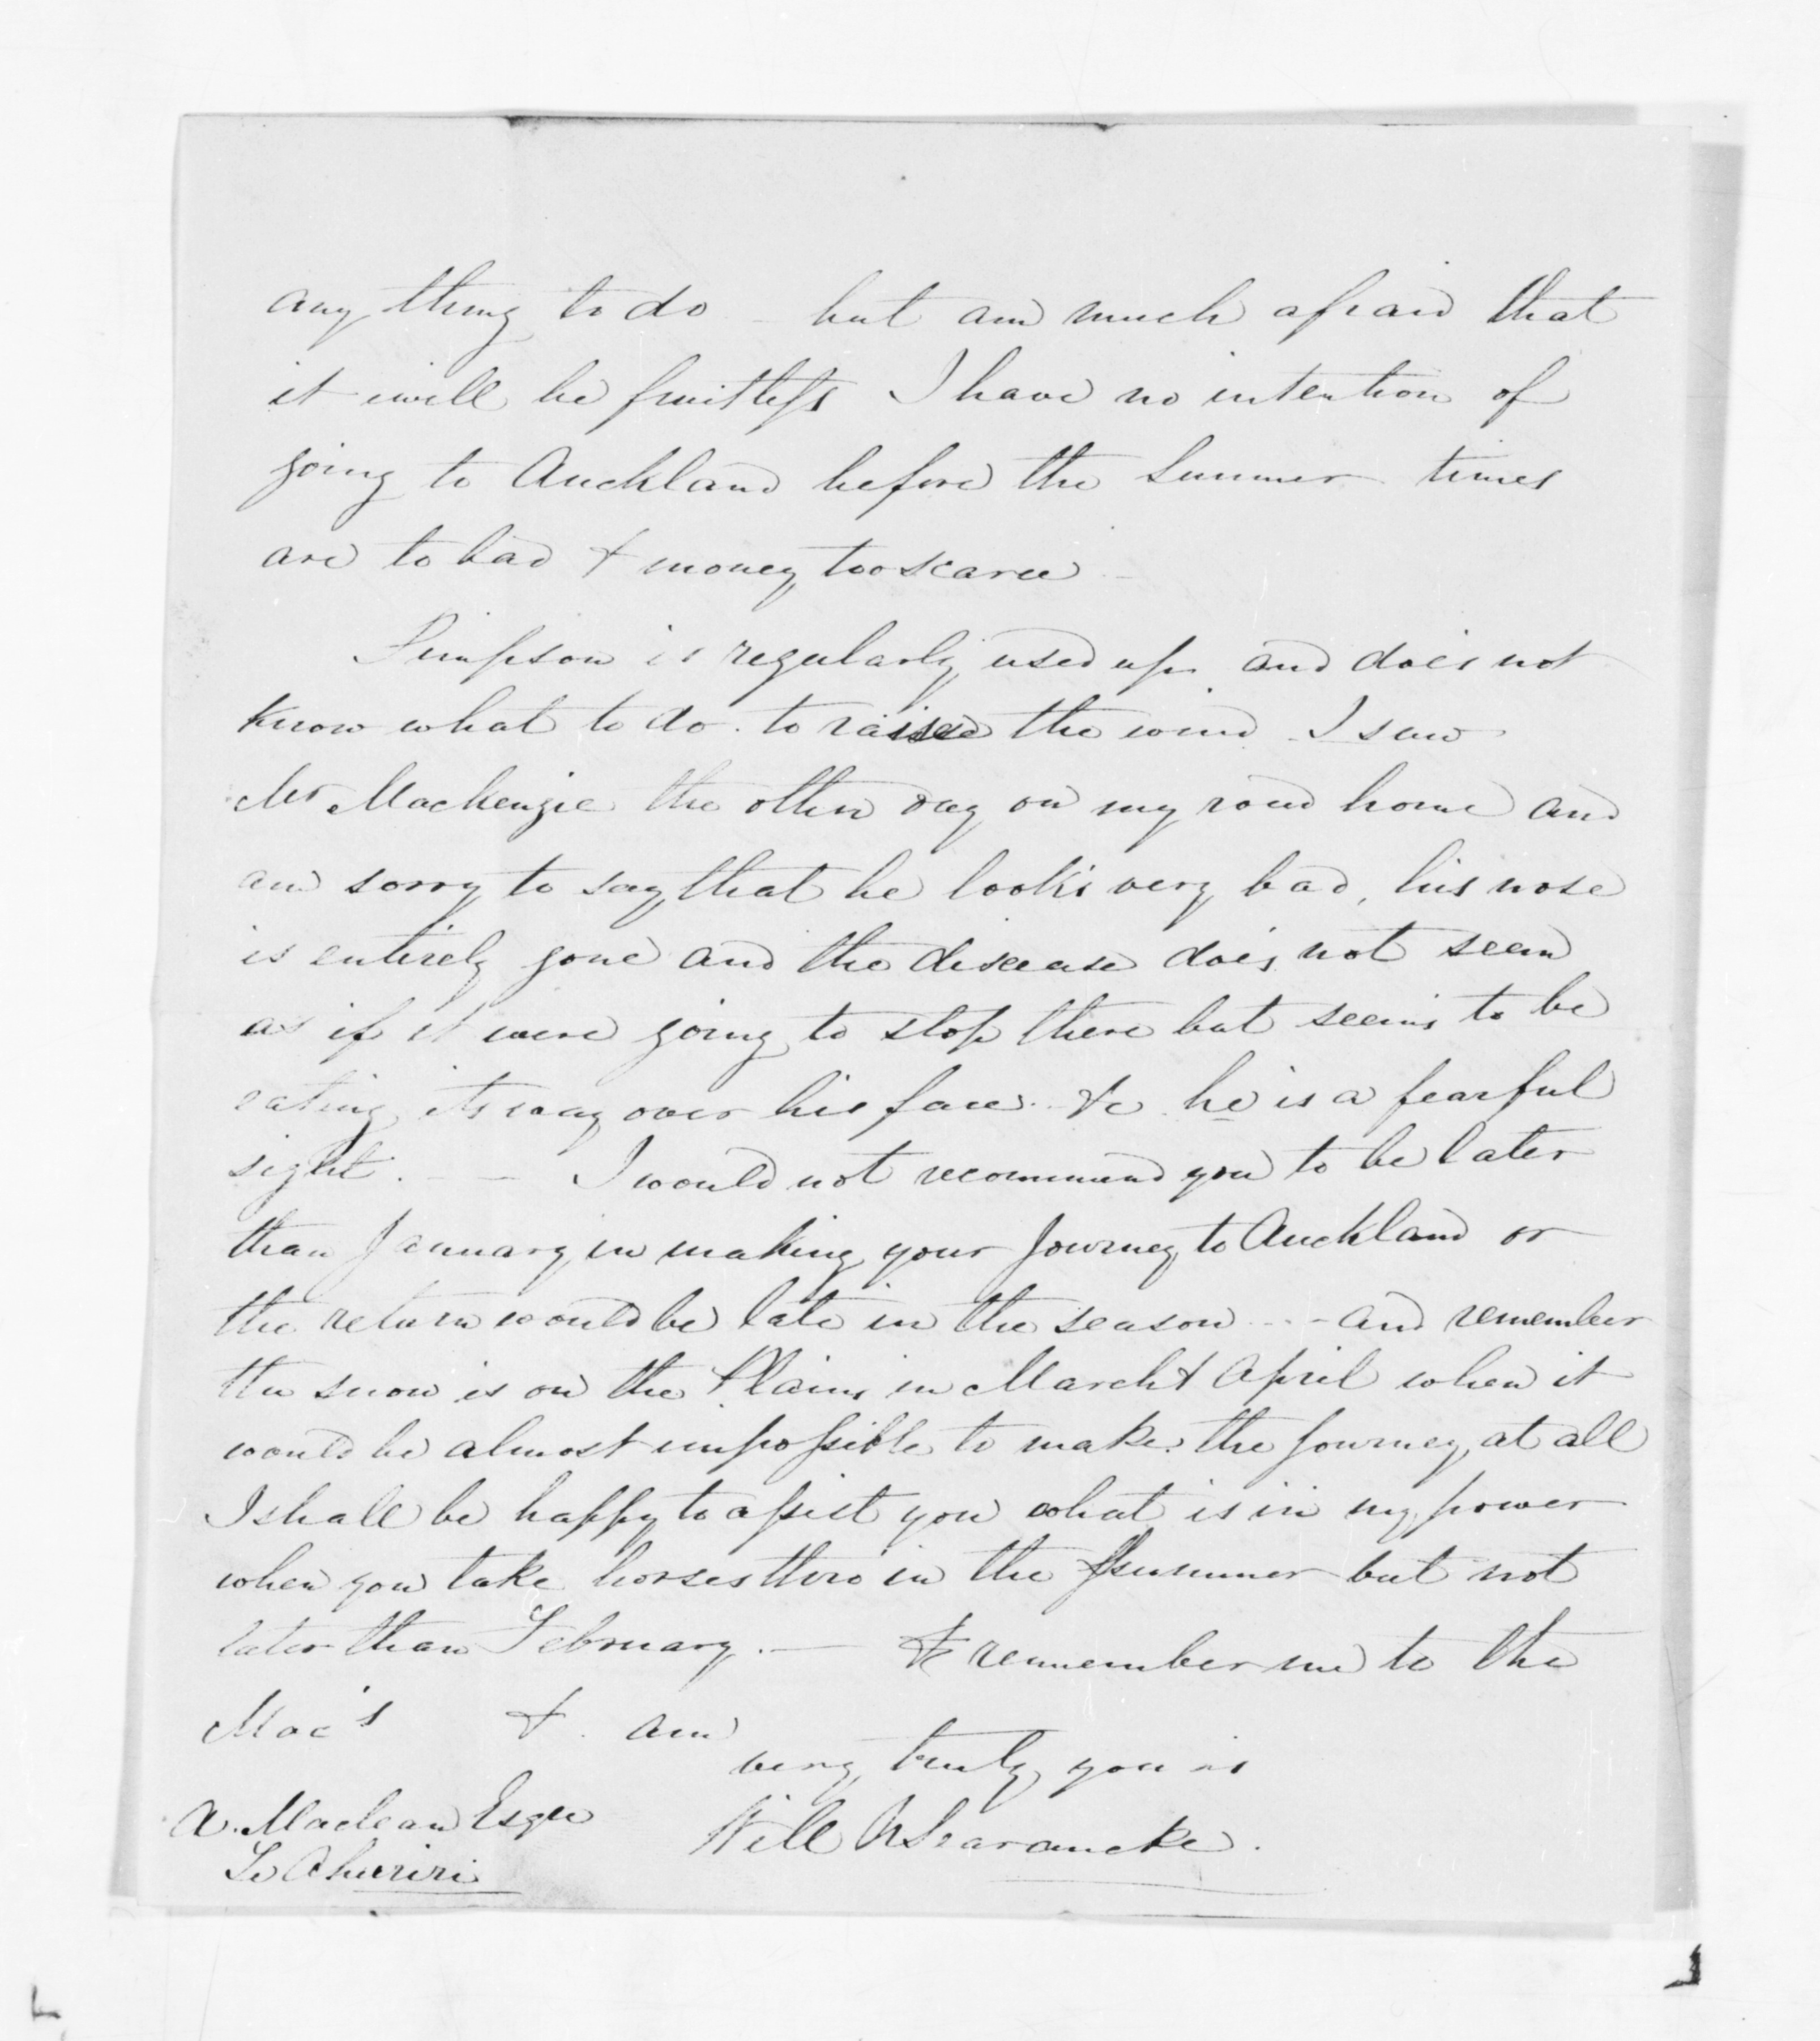 any thing to do - but am much afraid that
it will be fruitless I have no intention of
going to Auckland before the Summer times
are to bad & money too scarce -
Simpson is regularly used up and does not
know what to do. to raise the wind - I saw
Mr Mackenzie the other day on my road home and
am sorry to say that he looks very bad, his nose
is entirely gone and the disease does not seem
as if it were going to stop there but seems to be
eating its way over his face. &c he is a fearful
sight. - - I would not recommend you to be later
than January in making your Journey to Auckland or
the return would be late in the season - - - and remember
the snow is on the Plains in March & April when it
would be almost impossible to make the Journey at all
I shall be happy to assist you what is in my power
when you take horses thro in the summer but not
later than February. - & remember me to the
Mac's & am
very truly yours
Will N Searancke.
A. Maclean Esqre
Te Ahuriri